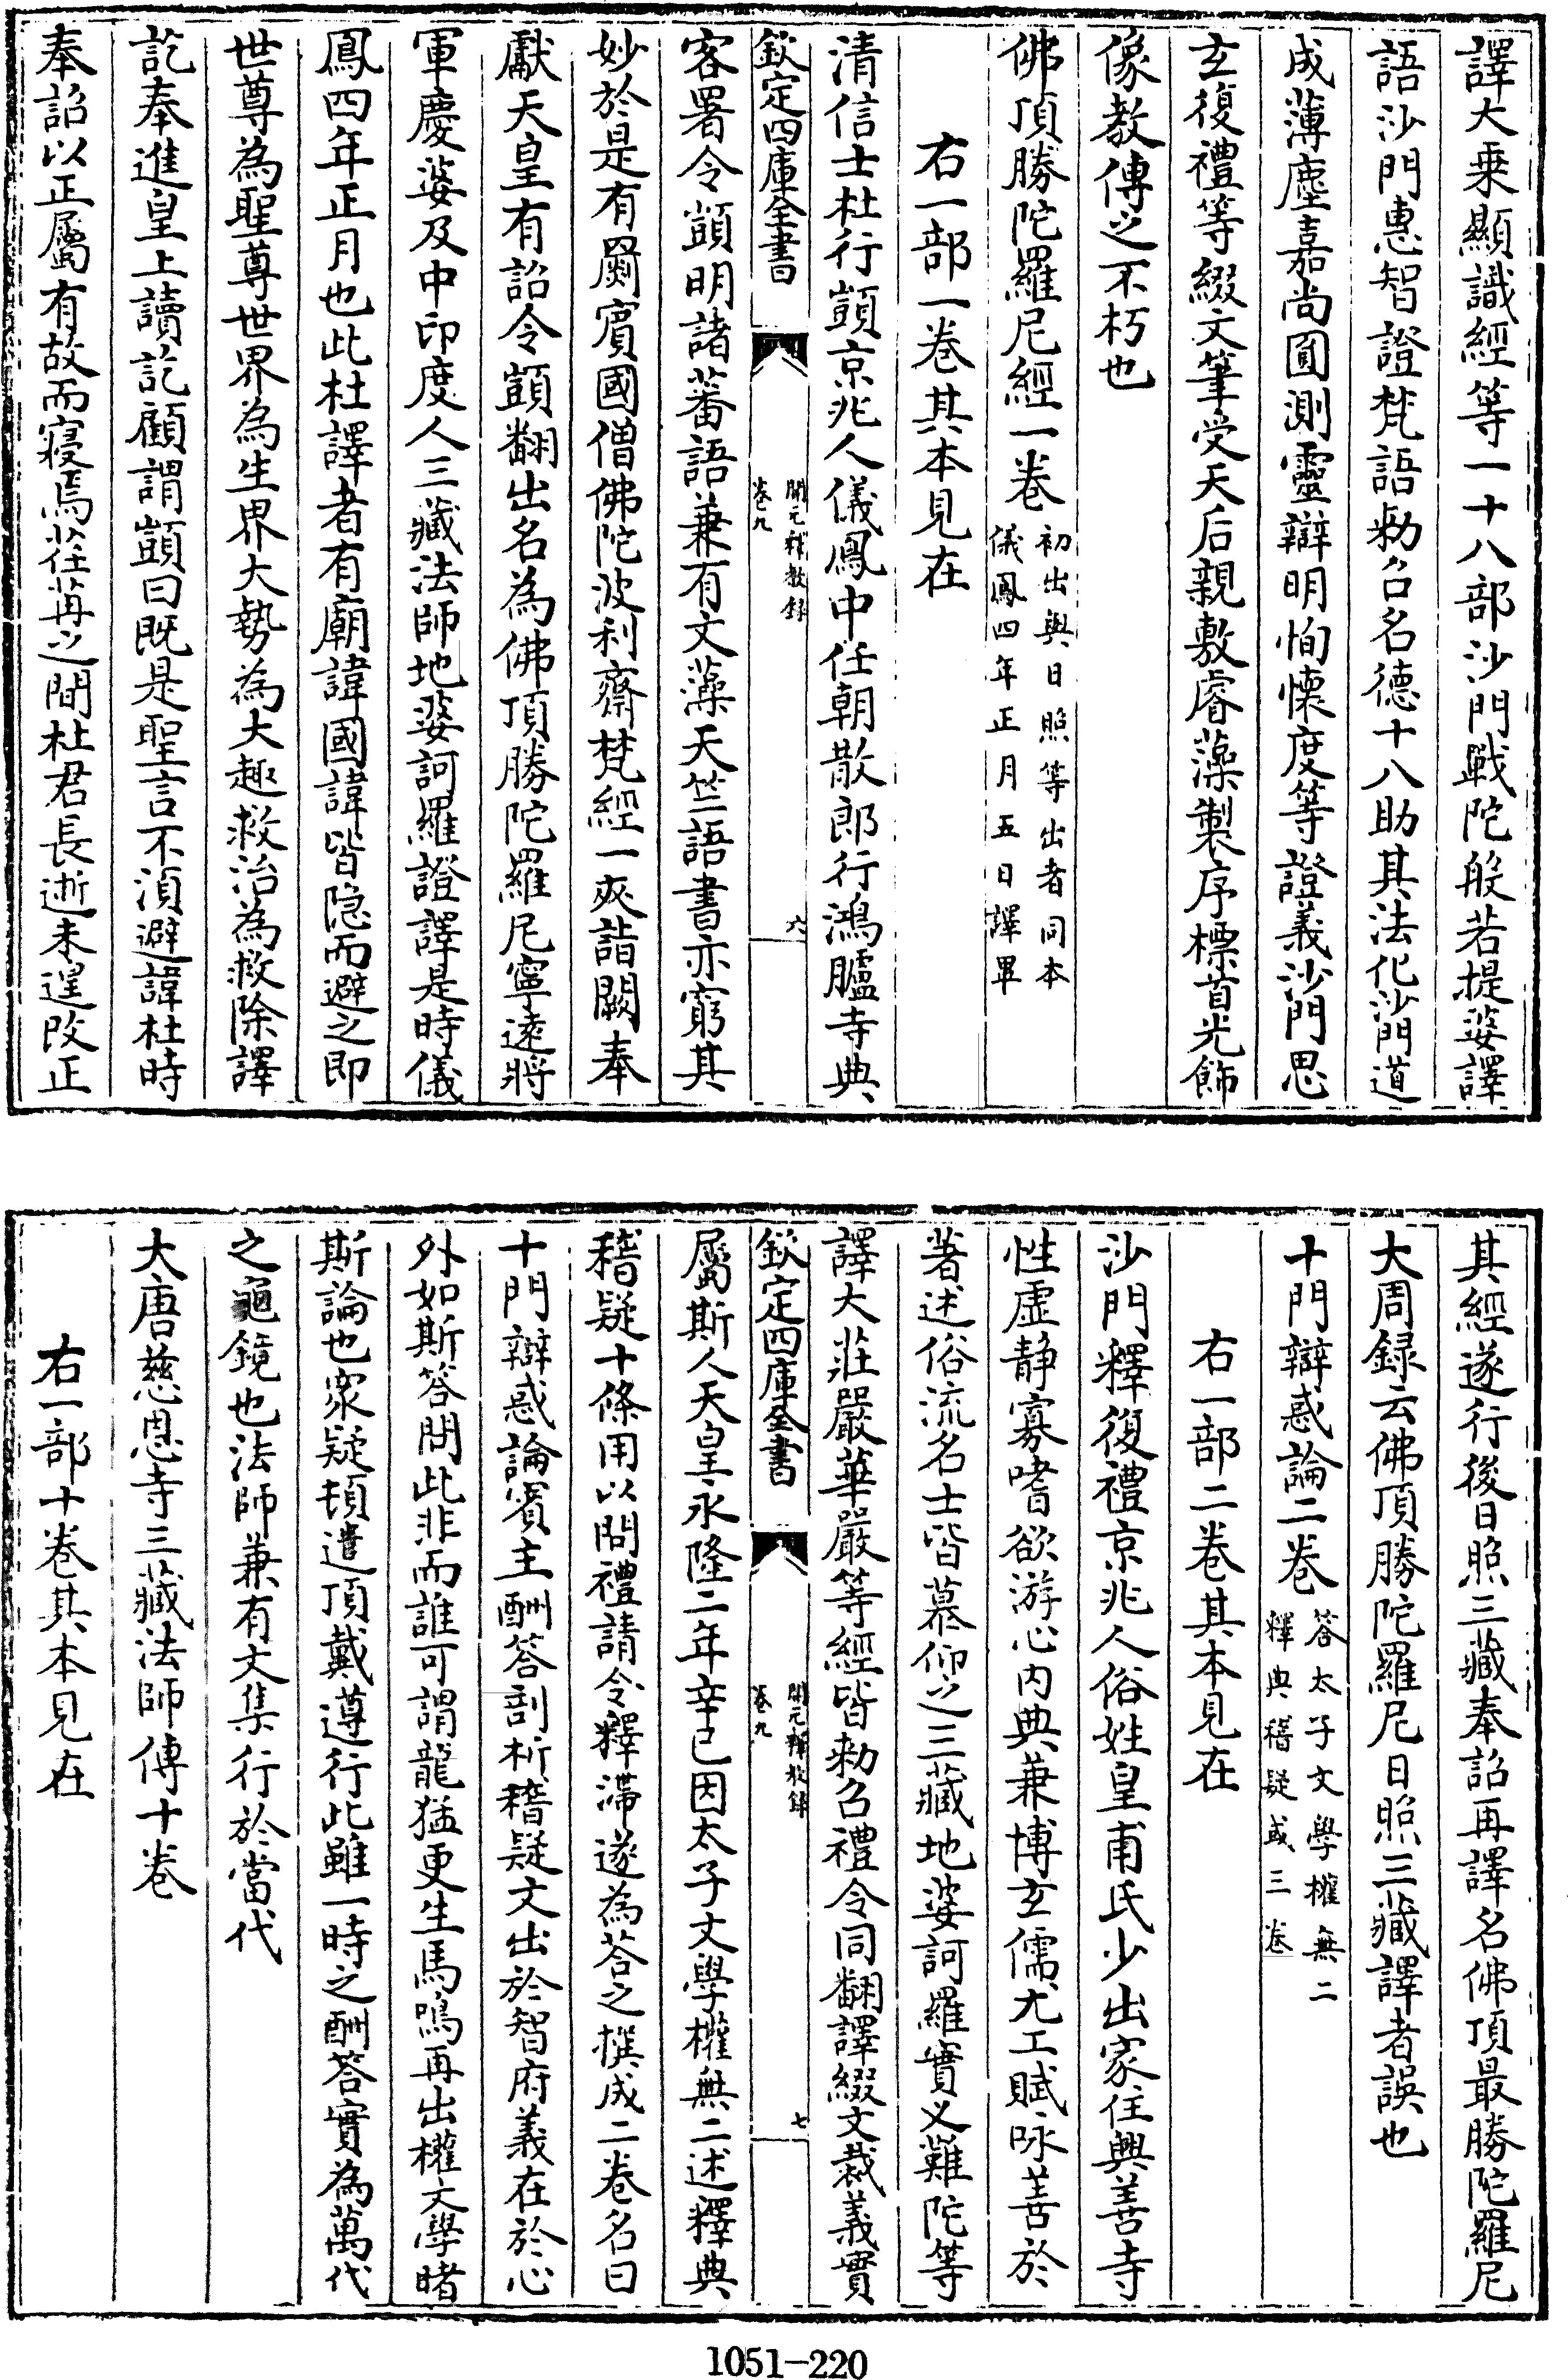 譯大乗顯識經等一十八部沙門戰陀般若提婆譯
語沙門惠智證梵語勅召名德十八助其法化沙門道
成薄塵嘉尚圓測靈辯明恂懷度等證義沙門思
玄復禮等綴文筆受天后親敷睿藻製序標首光飾
像教傳之不朽也
佛頂勝陀羅尼經一卷初出與日照等出者同本
儀鳳四年正月五日譯畢
右一部一卷其本見在
清信士杜行顗京兆人儀鳳中任朝散郎行鴻臚寺典
欽定四庫全書
開元釋教錄
卷九
六
客署令顗明諸蕃語兼有文藻天竺語書亦窮其
妙於是有罽賓國僧佛陀波利齋梵經一夾詣闕奉
獻天皇有詔令顗翻出名為佛頂勝陀羅尼寧遠將
軍慶婆及中印度人三藏法師地婆訶羅證譯是時儀
鳳四年正月也此杜譯者有廟諱國諱皆隐而避之即
世尊為聖尊世界為生界大勢為大趣救治為救除譯
訖奉進皇上讀訖顧謂顗曰既是聖言不須避諱杜時
奉詔以正屬有故而寢焉荏苒之間杜君長逝未遑改正
其經遂行後日照三藏奉詔再譯名佛頂最勝陀羅尼
大周録云佛頂勝陀羅尼日照三藏譯者誤也
十門辯惑論二卷答太子文學權無二
釋典稽疑或三卷
右一部二卷其本見在
沙門釋復禮京兆人俗姓皇甫氏少出家住興善寺
性虚静寡嗜欲游心内典兼博玄儒尤工賦咏善於
著述俗流名士皆慕仰之三藏地婆訶羅實义難陀等
譯大莊嚴華嚴等經皆勅召禮令同翻譯綴文裁義實
欽定四庫全書
開元釋教錄
卷九
七
屬斯人天皇永隆二年辛已因太子文學權無二述釋典
稽疑十條用以問禮請令釋滯遂為荅之撰成二卷名曰
十門辯惑論賓主酬答剖析稽疑文出於智府義在於心
外如斯答問此非而誰可謂龍猛更生馬鳴再出權文學睹
斯論也衆疑頓遣頂戴遵行此雖一時之酬答實為萬代
之龜鏡也法師兼有文集行於當代
大唐慈恩寺三藏法師傳十卷
右一部十卷其本見在
1051-220